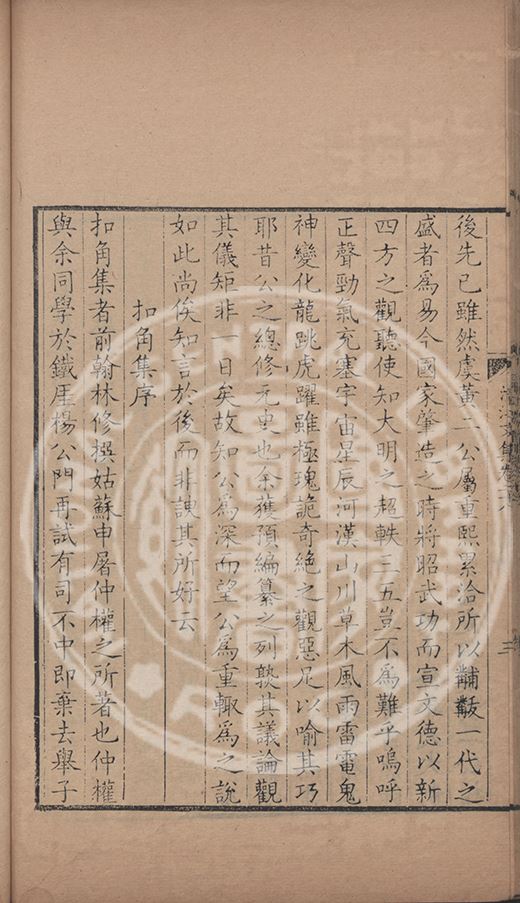 後先已雖然虞黃二公屬重熙累洽所以黼黻一代之
盛者爲易今國家肇造之時將昭武功而宣文德以新
四方之觀聽使知大明之超軼三五豈不爲難乎嗚呼
正聲勁氣充塞宇宙星辰河漢山川草木風雨雷電鬼
神變化龍跳虎躍雖極瑰詭奇絶之觀惡足以喻其巧
耶昔公之總修元史也余獲預編纂之列熟其議論觀
其儀矩非一日矣故知公爲深而望公爲重輙爲之說
如此尚俟知言於後而非諛其所好云
扣角集序
扣角集者前翰林修撰姑蘇申屠仲權之所著也仲權
與余同學於鐵厓楊公門再試有司不中即棄去舉子